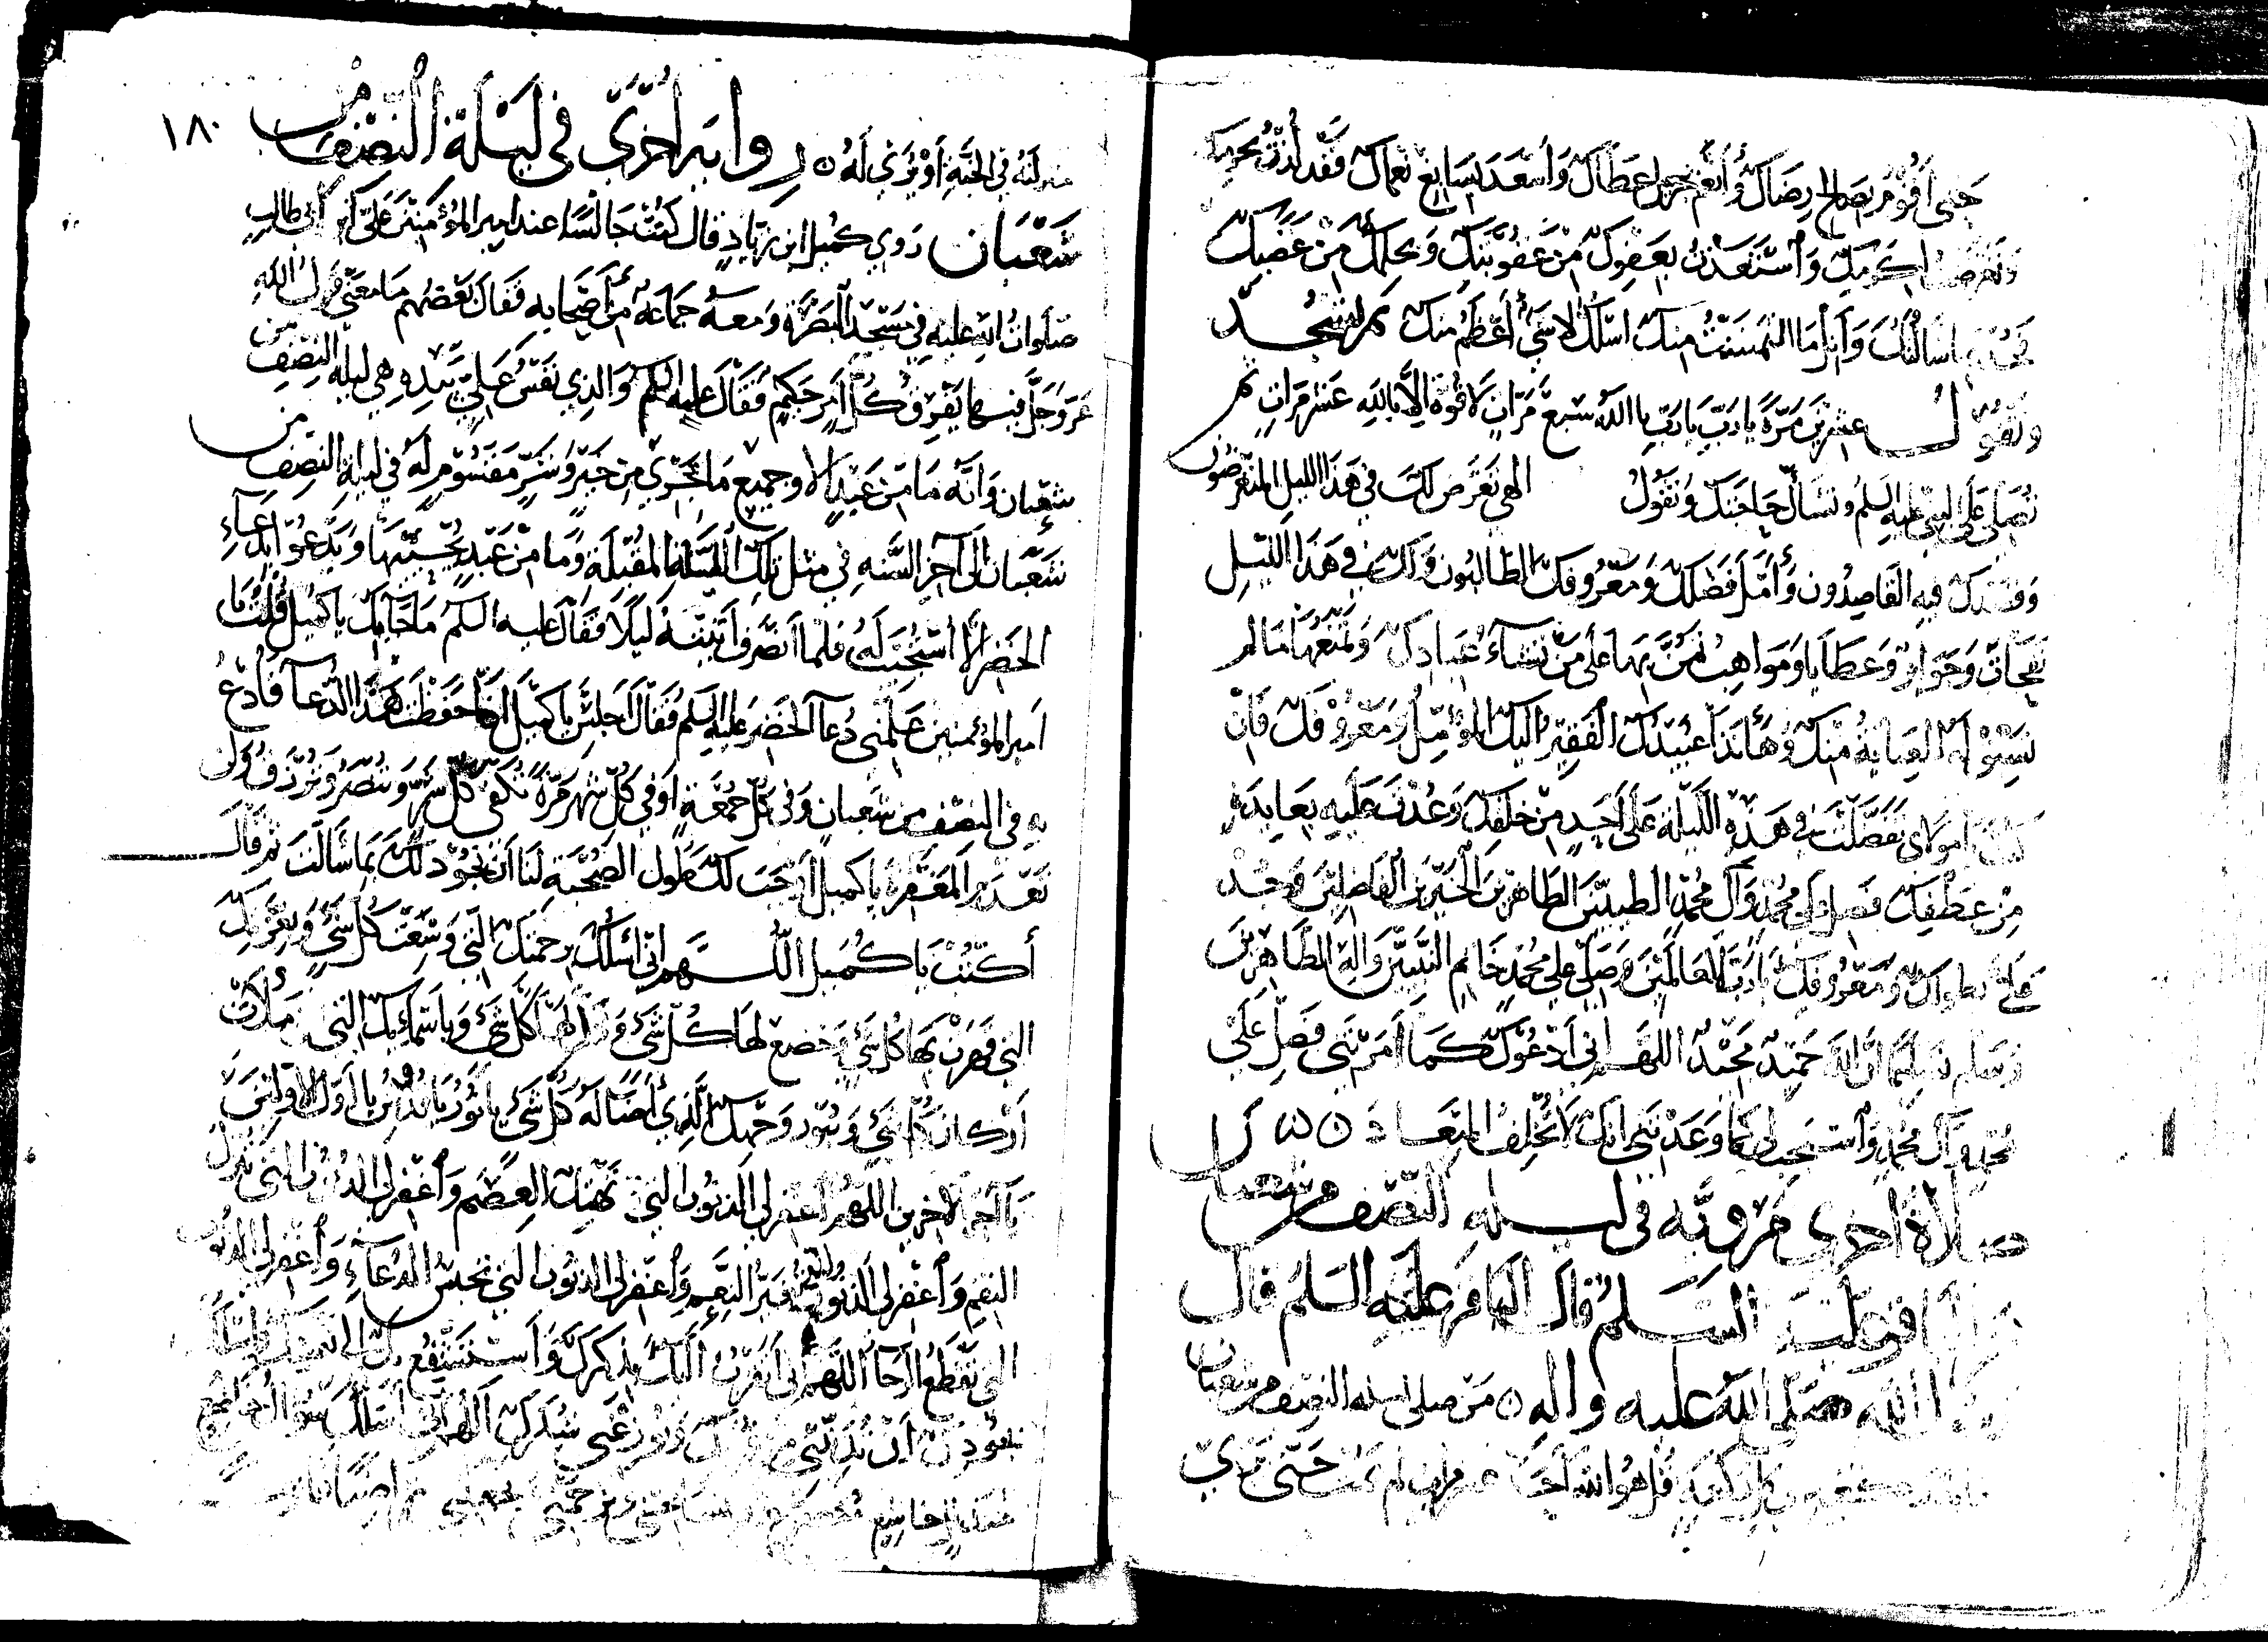 حتى أقوم بصالح رضاك وأنعم بجزيل عطائك وأسعد بسابغ نعمائك فقد لذت بحرمك
وتعرضت لكرمك واستعذت بعفوك من عقوبتك وبحلمك من غضبك
فجد بما سألتك وأنل ما التمست منك اسئلك لا شيء أعظم منك ثم تسجد
وتقول عشرين مرة يا رب يا رب يا الله سبع مرات لا قوة إلا بالله عشر مرات ثم
تصلي على النبي عليه السلم وتسأل حاجتك وتقول الهي تعرض لك في هذا الليل المتعرضون
وقصدك فيه القاصدون وأمل فضلك ومعروفك الطالبون ولك في هذا الليل
نفحات وجوائز وعطايا ومواهب تمن بها على من تشاء من عبادك وتمنعها من لم
تسبق له العناية منك وها أنا ذا عبيدك الفقير اليك المؤمل ومعروفك فان
كنت يا مولاي تفضلت في هذه الليلة على أحد من خلقك وعدت عليه بعايدة
من عطفك فصل على محمد وآل محمد الطيبين الطاهرين الخيرين الفاضلين وجد
علي بطولك ومعروفك يا رب العالمين وصلى على محمد خاتم النبيين وآله الطاهرين
وسلم تسليما ان الله حميد مجيد اللهم إني أدعوك كما أمرتني فصل على
محمد وآل محمد واستجب لي كما وعدتني انك لا تخلف الميعاد
صلاة اخرى مروية في ليلة النصف من شعبان
عليه السلم قال الباقر عليه السلم قال
رسول الله صلى الله عليه واله من صلى ليلة النصف من شعبان
قل هو الله أحد عشر مرات لم يمت حتى يرى
منزلته في الجنة أو ترى له رواية أخرى في ليلة النصف من ١٨٠
شعبان روي كميل ابن زياد قال كنت جالسا عند امير المؤمنين علي ابن أبي طالب
صلوات الله عليه في مسجد البصرة ومعه جماعة من أصحابه فقال بعضهم ما معنى قول الله
عز وجل فيها يفرق كل أمر حكيم فقال عليه السلم والذي نفس علي بيده هي ليلة النصف من
شعبان وانه ما من عبد الا وجميع ما يجري من خير وشر مقسوم له في ليلة النصف من
شعبان الى آخر السنه في مثل تلك الليلة المقبلة وما من عبد يحييها ويدعو بدعاء
الخضر إلا أستجيب له فلما انصرف أتيته ليلا فقال عليه السلم ما جاء بك يا كميل قلت يا
امير المؤمنين علمني دعاء الخضر عليه السلم فقال اجلس يا كميل اذا حفظت هذا الدعاء فادع
به في النصف من شعبان وفي كل جمعة او في كل شهر مرة تكفى كل شر وتنصر وترزق ولن
تعدم المغفرة يا كميل أوجب لك طول الصحبة لنا أن نجود لك بما سألت ثم قال
أكتب يا كميل اللهم اني اسئلك برحمتك التي وسعت كل شيء وبعزتك
التي قهرت بها كل شيء وخضع لها كل شيء وذل لها كل شيء وبأسمائك التي ملأت
أركان كل شيء وبنور وجهك الذي أضاء له كل شيء يا نور يا قدوس يا أول الاولين
يا آخر الاخرين اللهم اغفر لي الذنوب التي تهتك العصم وأغفر لي الذنوب التي تنزل
النقم وأغفر لي الذنوب التي تغير النعم وأغفر لي الذنوب التي تحبس الدعاء وأغفر لي الذنوب
التي تقطع الرجاء اللهم إني أتقرب اليك بذكرك وأستشفع بك الى نفسك وأسئلك
بجودك أن تدنيني من قربك وتوزعني شكرك اللهم إني اسئلك سؤال خاضع
متذلل خاشع